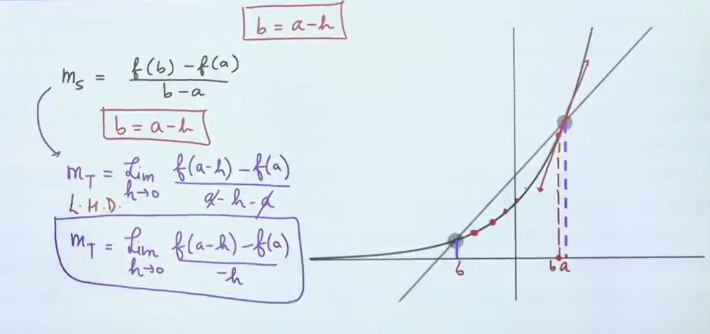 b = a-h
m_S = \frac{f(b) - f(a)}{b - a}
b = a-h
m_T = \lim_{h→0} \frac{f(a-h) - f(a)}{a - h - a}
L.H.D.
m_T = \lim_{h→0} \frac{f(a-h) - f(a)}{-h}
b b a